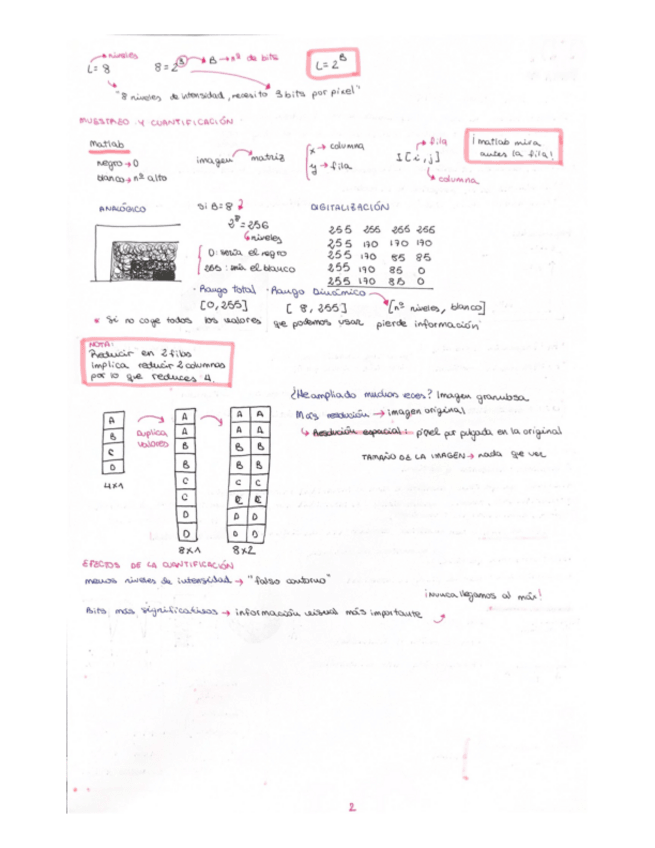 niveles
L = 8
8 = 2^B
B → nº de bits
L = 2^B
"8 niveles de intensidad, necesito 3 bits por pixel"
MUESTREO Y CUANTIFICACIÓN
Matlab
negro → 0
blanco → nº alto
imagen matriz
x → columna
y → fila
I [i, j]
fila
columna
¡matlab mira
antes la fila!
ANALÓGICO
Si B = 8
2^8 = 256
niveles
0: sería el negro
255: sería el blanco
DIGITALIZACIÓN
255 255 255 255
255 170 170 170
255 170 85 85
255 170 85 0
255 170 85 0
· Rango total · Rango Dinámico
[0, 255] [8, 255] [nº niveles, blanco]
* Si no coge todos los valores que podemos usar pierde información
NOTA:
Reducir en 2 filas
implica reducir 2 columnas
por lo que reduces 4.
¿He ampliado muchas veces? Imagen granulosa
Más resolución → imagen original
Resolución espacial: pixel por pulgada en la original
TAMAÑO DE LA IMAGEN → nada que ver
A
B
C
D
4x1
duplica
valores
A
A
B
B
C
C
D
D
8x1
A A
A A
B B
B B
C C
C C
D D
D D
8x2
EFECTOS DE LA CUANTIFICACIÓN
menos niveles de intensidad → "falso contorno"
¡nunca llegamos al más!
Bits más significativos → información visual más importante
2